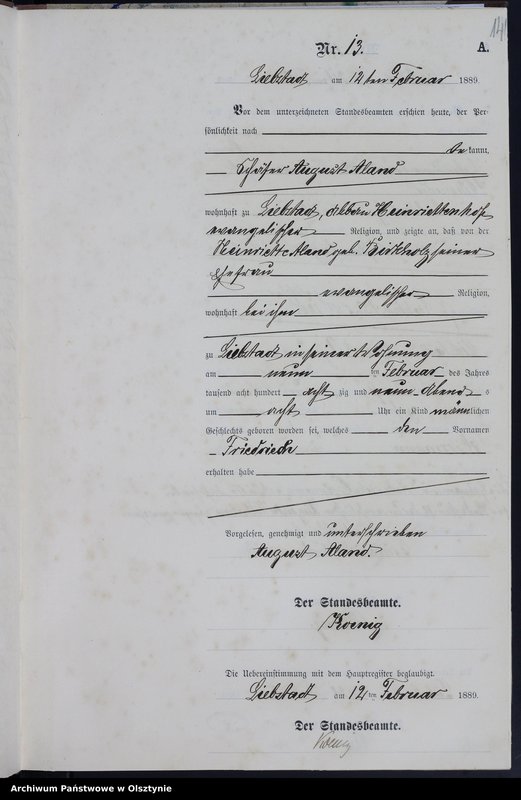 14
Nr. 13. A.
Liebstadt am 12ten Februar 1889.
Vor dem unterzeichneten Standesbeamten erschien heute, der Per-
sönlichkeit nach
bekannt,
Schäfer August Aland
wohnhaft zu Liebstadt, Abbau Henriettenhof
evangelischer Religion, und zeigte an, daß von der
Henriette Aland geb. Birkholz seiner
Ehefrau
evangelischer Religion,
wohnhaft bei ihm
zu Liebstadt in seiner Wohnung
am neun ten Februar des Jahres
tausend acht hundert acht zig und neun Abends
um acht Uhr ein Kind männlichen
Geschlechts geboren worden sei, welches den Vornamen
Friedrich
erhalten habe
Vorgelesen, genehmigt und unterschrieben
August Aland.
Der Standesbeamte.
Koenig
Die Uebereinstimmung mit dem Hauptregister beglaubigt.
Liebstadt am 12 ten Februar 1889.
Der Standesbeamte.
Koenig
Archiwum Państwowe w Olsztynie